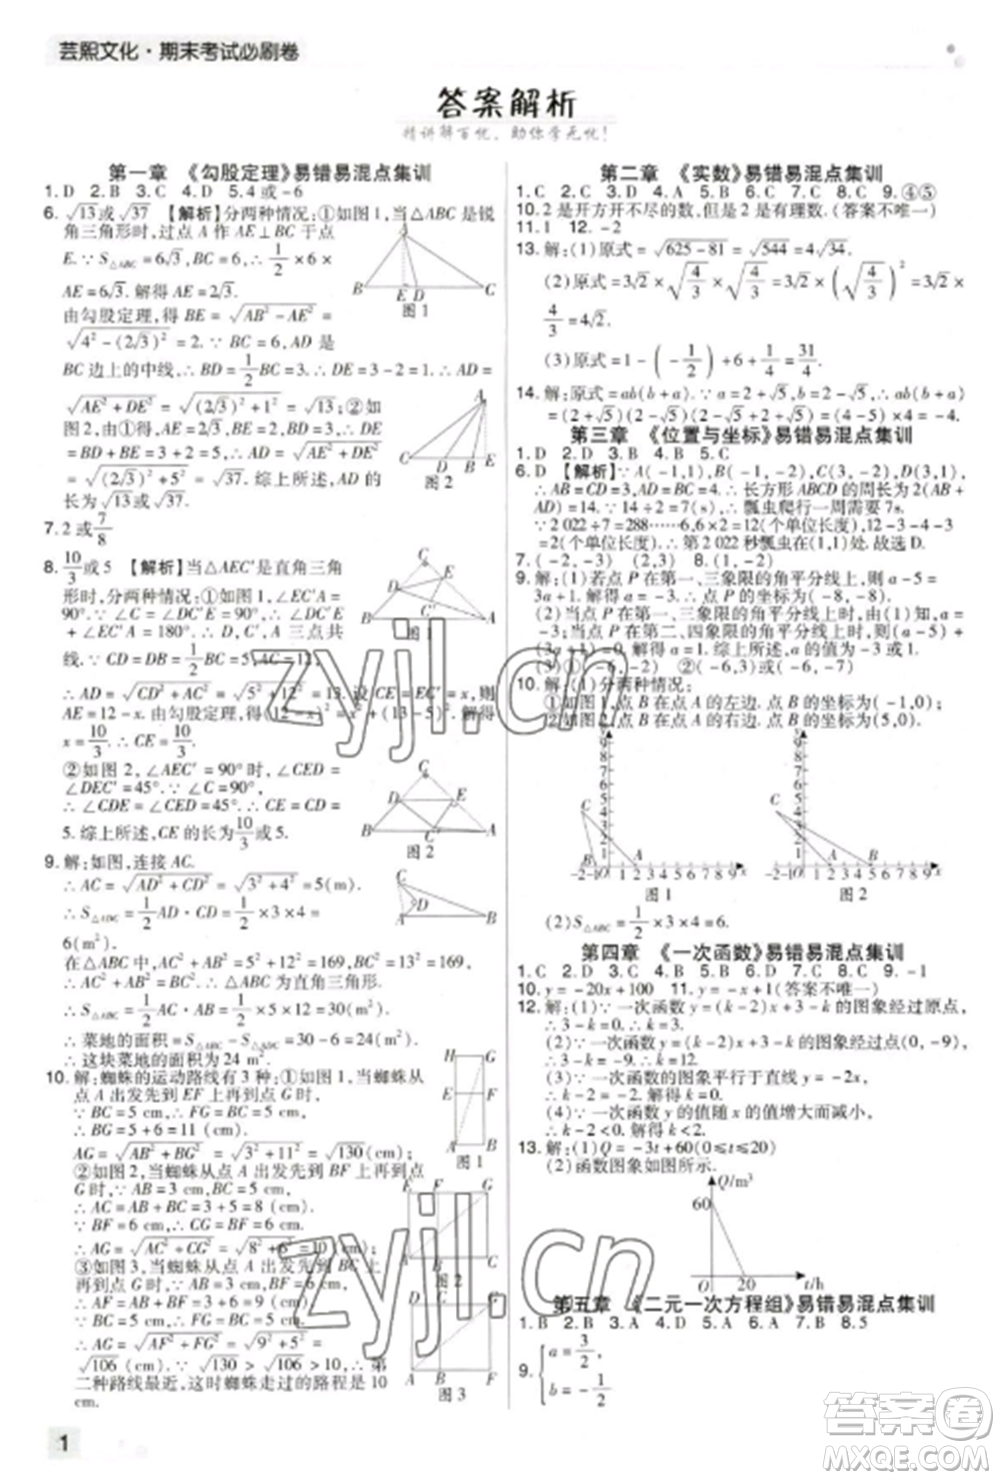 芸熙文化·期末考试必刷卷
答案解析
精讲解百忧、助你学无忧!
第一章 《勾股定理》易错易混点集训
1. D 2. B 3. C 4. D 5. 4 或 -6
6. √13或√37 【解析】分两种情况:①如图 1,当△ABC 是锐
角三角形时,过点 A 作 AE⊥BC 于点
E. ∵ S△ABC = 6√3, BC = 6, ∴ 1/2 × 6 ×
AE = 6√3. 解得 AE = 2√3.
由勾股定理,得 BE = √(AB² - AE²) =
√(4² - (2√3)²) = 2. ∵ AD 是
BC 边上的中线, ∴ BD = 1/2 BC = 3. ∴ DE = 3 - 2 = 1. ∴ AD =
√(AE² + DE²) = √((2√3)² + 1²) = √13;②如
图 2,由①得,AE = 2√3, BE = 2, BD = 3, ∴
DE = BD + BE = 5. ∴ AD = √(AE² + DE²)
= √((2√3)² + 5²) = √37. 综上所述,AD 的
长为 √13或√37.
图 1
图 2
7. 2 或 7/8
8. 10/3 或 5 【解析】当△AEC′是直角三角
形时,分为两种情况:①如图 1,∠EC′A =
90°. ∵ ∠C = ∠DC′E = 90°, ∴ ∠DC′E +
∠EC′A = 180°, ∴ D, C′, A 三点共
线. ∵ CD = DB = 1/2 BC = 5, AC = 12,
∴ AD = √(CD² + AC²) = √(5² + 12²) = 13. 设 CE = EC′ = x, 则
AE = 12 - x. 由勾股定理,得(12 - x)² = x² + (13 - 5)². 解得
x = 10/3. ∴ CE = 10/3;
②如图 2,∠AEC′ = 90°时,∠CED =
∠DEC′ = 45°. ∵ ∠C = 90°,
∴ ∠CDE = ∠CED = 45°. ∴ CE = CD =
5. 综上所述,CE 的长为 10/3 或 5.
图 1
图 2
9. 解:如图,连接 AC.
∴ AC = √(AD² + CD²) = √(3² + 4²) = 5(m).
∴ S△ADC = 1/2 AD · CD = 1/2 × 3 × 4 =
6(m²).
在△ABC 中,∵ AC² + BC² = 5² + 12² = 169, AB² = 13² = 169,
∴ AC² + BC² = AB². ∴ △ABC 为直角三角形.
∴ S△ABC = 1/2 AC · BC = 1/2 × 5 × 12 = 30(m²).
∴ 菜地的面积 = S△ABC - S△ADC = 30 - 6 = 24(m²).
∴ 这块菜地的面积为 24 m².
10. 解:蜘蛛的运动路线有 3 种:①如图 1,当蜘蛛从
点 A 出发先到 EF 上再到点 G 时,
∵ BC = 5 cm, ∴ FG = BC = 5 cm.
∴ BG = 5 + 6 = 11(cm).
AG = √(AB² + BG²) = √(3² + 11²) = √130(cm).
②如图 2,当蜘蛛从点 A 出发先到 BF 上再到点
G 时,∵ AB = 3 cm, BC = 5 cm, ∴ AC = 3 + 5 = 8(cm).
∵ BF = 6 cm, ∴ CG = BF = 6 cm.
∴ AG = √(AC² + CG²) = √(8² + 6²) = 10(cm).
③如图 3,当蜘蛛从点 A 出发先到 BC 上再到点 G 时,
∴ AF = AB + BF = 3 + 6 = 9(cm).
∵ BC = 5 cm, ∴ FG = BC = 5 cm.
∴ AG = √(AF² + FG²) = √(9² + 5²) =
√106(cm). ∵ √130 > √106 > 10, ∴ 第
二种路线最近,这时蜘蛛走过的路程是 10
cm.
图 1
图 2
图 3
第二章 《实数》易错易混点集训
1. C 2. C 3. D 4. A 5. B 6. B 7. C 8. C 9. ④⑤
10. 2 是开方开不尽的数,但是 2 是有理数. (答案不唯一)
11. 1 12. -2
13. 解:(1)原式 = √(625 - 81) = √544 = 4√34.
(2)原式 = 3√2 × √(4/3 × √(4/3)) = 3√2 × √(4/3)² = 3√2 ×
4/3 = 4√2.
(3)原式 = 1 - (-1/2) + 6 + 1/4 = 31/4.
14. 解:原式 = ab(b + a). ∵ a = 2 + √5, b = 2 - √5, ∴ ab(b + a)
= (2 + √5)(2 - √5)(2 - √5 + 2 + √5) = (4 - 5) × 4 = -4.
第三章 《位置与坐标》易错易混点集训
1. C 2. D 3. B 4. A 5. D
6. D 【解析】∵ A(-1,1), B(-1,-2), C(3,-2), D(3,1),
∴ AB = CD = 3, AD = BC = 4. ∴ 长方形 ABCD 的周长为 2(AB +
AD) = 14. ∵ 14 ÷ 2 = 7(s), ∴ 瓢虫爬行一周需要 7s.
∵ 2 022 ÷ 7 = 288……6, 6 × 2 = 12(个单位长度), 12 - 4 - 3 - 4
= 1(个单位长度), ∴ 第 2 022 秒瓢虫在(1,1)处. 故选 D.
7. (-2,-2) (2,2) 8. (1,-2)
9. 解:(1)若点 P 在第一、三象限的角平分线上,则 a - 5 =
3a + 1. 解得 a = -3.
(2)当点 P 在第一、三象限的角平分线上时,由(1)知,a =
-3;当点 P 在第二、四象限的角平分线上时,则(a - 5) +
(3a + 1) = 0. 解得 a = 1. 综上所述,a 的值为 -3 或 1.
(3)①(-5,1) ②(-6,-2)或(-4,4)
10. 解:(1)分两种情况:
①如图 1,点 B 在点 A 的左边. 点 B 的坐标为(-1,0);
②如图 2,点 B 在点 A 的右边. 点 B 的坐标为(5,0).
图 1
图 2
(2)S△ABC = 1/2 × 3 × 4 = 6.
第四章 《一次函数》易错易混点集训
1. C 2. D 3. C 4. B 5. C 6. D 7. C 8. C 9. -1
10. y = -20x + 100 11. y = -x + 1(答案不唯一)
12. 解:(1)∵ 一次函数 y = (k - 2)x + 3 - k 的图象经过原点,
∴ 3 - k = 0. 解得 k = 3.
(2)∵ 一次函数 y = (k - 2)x + 3 - k 的图象经过点(0,-9),
∴ 3 - k = -9. 解得 k = 12.
(3)∵ 一次函数的图象平行于直线 y = -2x,
∴ k - 2 = -2. ∴ k = 0.
(4)∵ 一次函数 y 的值随 x 的值增大而减小,
∴ k - 2 < 0. ∴ k < 2.
13. 解:(1)Q = -3t + 60(0 ≤ t ≤ 20)
(2)函数图象如图所示.
Q/m³
60
O 20 t/h
第五章 《二元一次方程组》易错易混点集训
1. B 2. C 3. D 4. D 5. A 6. C 7. B 8. 5
9. { a = 3/2,
b = -1/2
1
zyjl.cn
zyjl.cn
答案圈
MXQE.COM